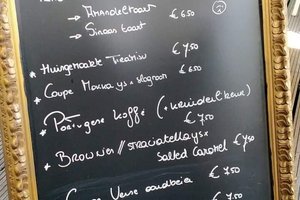 → Amandeltaart € 6.50
→ Sinaas taart
* Huisgemaakte Tiramisu € 7,50
* Coupe Mokka ys + slagroom € 6.50
* Portugese koffie (+ likeur
€ 7,50
* Brownies // straciatella ys +
Salted Caramel € 7,50
€ 7,50
Verse aardbeien
€ 7,50